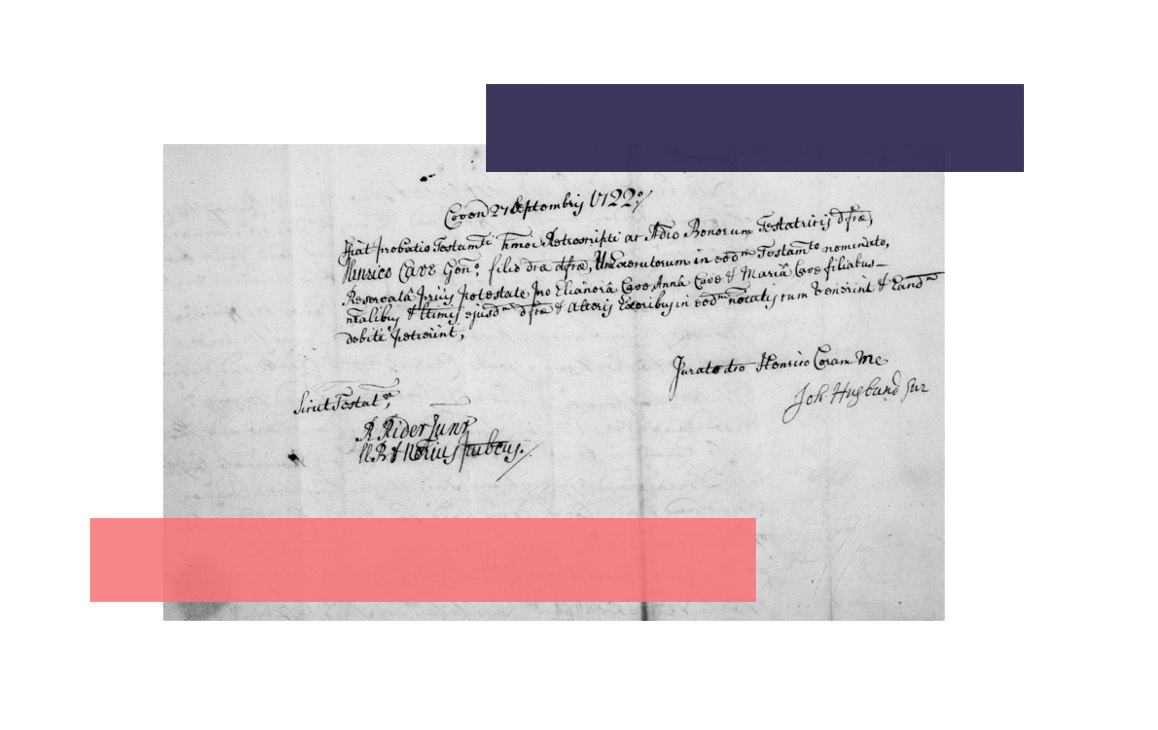 Coven 27 Septembris 1722°/
Fiat probatio Testamti hmoi Retroscripti ac Adio Bonorum Testatricis dftæ,
Henrico Cave Gen: filio dtæ dftæ, Uni Executorum in eodm Testamto nominato,
Reservatâ prius potestate pro Elianorâ Cave, Annâ Cave & Mariâ Cave filiabus
nralibus & ltimis ejusdm dftæ & Alteris Exoribus in eodm notatis cum Venerint & Eandm
debitè petierint,
Jurato dto Henrico Coram Me
Joh Husband Sur
Sicut Testatr,
R Rider Junr
N. P.